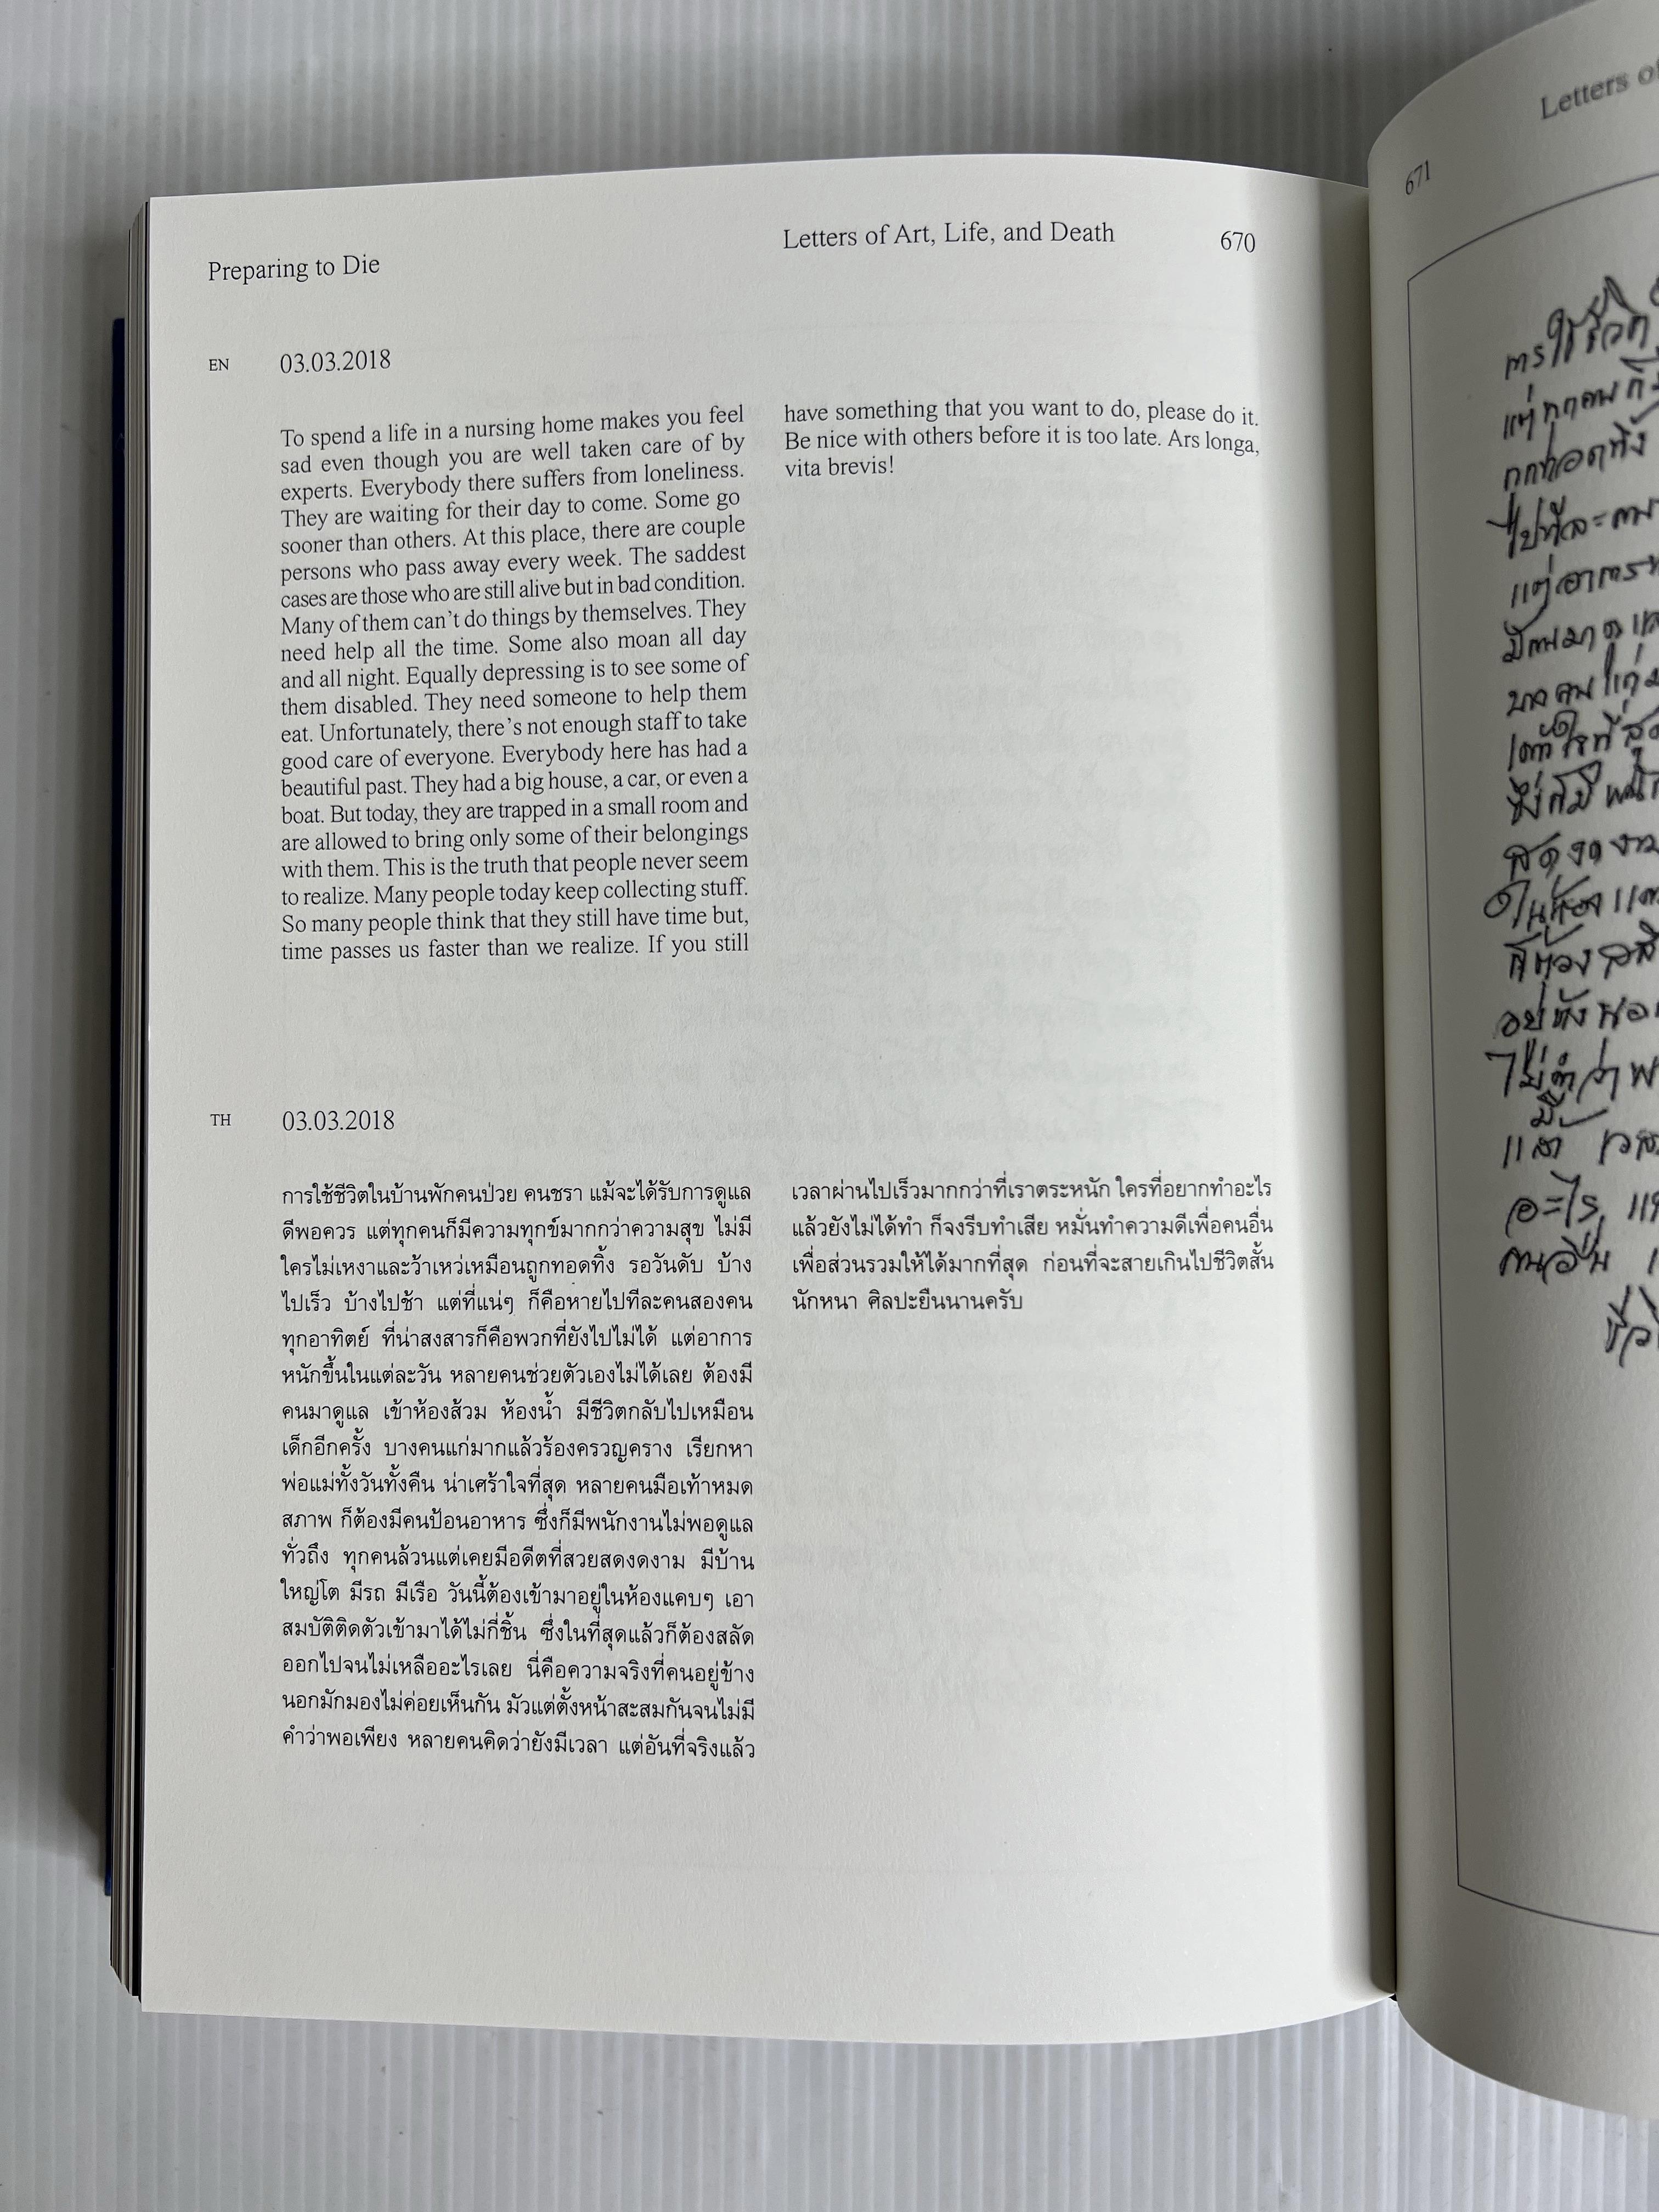 Preparing to Die
Letters of Art, Life, and Death
670
EN
03.03.2018
To spend a life in a nursing home makes you feel
sad even though you are well taken care of by
experts. Everybody there suffers from loneliness.
They are waiting for their day to come. Some go
sooner than others. At this place, there are couple
persons who pass away every week. The saddest
cases are those who are still alive but in bad condition.
Many of them can't do things by themselves. They
need help all the time. Some also moan all day
and all night. Equally depressing is to see some of
them disabled. They need someone to help them
eat. Unfortunately, there's not enough staff to take
good care of everyone. Everybody here has had a
beautiful past. They had a big house, a car, or even a
boat. But today, they are trapped in a small room and
are allowed to bring only some of their belongings
with them. This is the truth that people never seem
to realize. Many people today keep collecting stuff.
So many people think that they still have time but,
time passes us faster than we realize. If you still
have something that you want to do, please do it.
Be nice with others before it is too late. Ars longa,
vita brevis!
TH
03.03.2018
การใช้ชีวิตในบ้านพักคนป่วย คนชรา แม้จะได้รับการดูแล
ดีพอควร แต่ทุกคนก็มีความทุกข์มากกว่าความสุข ไม่มี
ใครไม่เหงาและว้าเหว่เหมือนถูกทอดทิ้ง รอวันดับ บ้าง
ไปเร็ว บ้างไปช้า แต่ที่แน่ๆ ก็คือหายไปทีละคนสองคน
ทุกอาทิตย์ ที่น่าสงสารก็คือพวกที่ยังไปไม่ได้ แต่อาการ
หนักขึ้นในแต่ละวัน หลายคนช่วยตัวเองไม่ได้เลย ต้องมี
คนมาดูแล เข้าห้องส้วม ห้องน้ำ มีชีวิตกลับไปเหมือน
เด็กอีกครั้ง บางคนแก่มากแล้วร้องครวญคราง เรียกหา
พ่อแม่ทั้งวันทั้งคืน น่าเศร้าใจที่สุด หลายคนมือเท้าหมด
สภาพ ก็ต้องมีคนป้อนอาหาร ซึ่งก็มีพนักงานไม่พอดูแล
ทั่วถึง ทุกคนล้วนแต่เคยมีอดีตที่สวยสดงดงาม มีบ้าน
ใหญ่โต มีรถ มีเรือ วันนี้ต้องเข้ามาอยู่ในห้องแคบๆ เอา
สมบัติติดตัวเข้ามาได้ไม่กี่ชิ้น ซึ่งในที่สุดแล้วก็ต้องสลัด
ออกไปจนไม่เหลืออะไรเลย นี่คือความจริงที่คนอยู่ข้าง
นอกมักมองไม่ค่อยเห็นกัน มัวแต่ตั้งหน้าสะสมกันจนไม่มี
คำว่าพอเพียง หลายคนคิดว่ายังมีเวลา แต่อันที่จริงแล้ว
เวลาผ่านไปเร็วมากกว่าที่เราตระหนัก ใครที่อยากทำอะไร
แล้วยังไม่ได้ทำ ก็จงรีบทำเสีย หมั่นทำความดีเพื่อคนอื่น
เพื่อส่วนรวมให้ได้มากที่สุด ก่อนที่จะสายเกินไปชีวิตสั้น
นักหนา ศิลปะยืนนานครับ
Letters of
671
การใช้ชีวิต